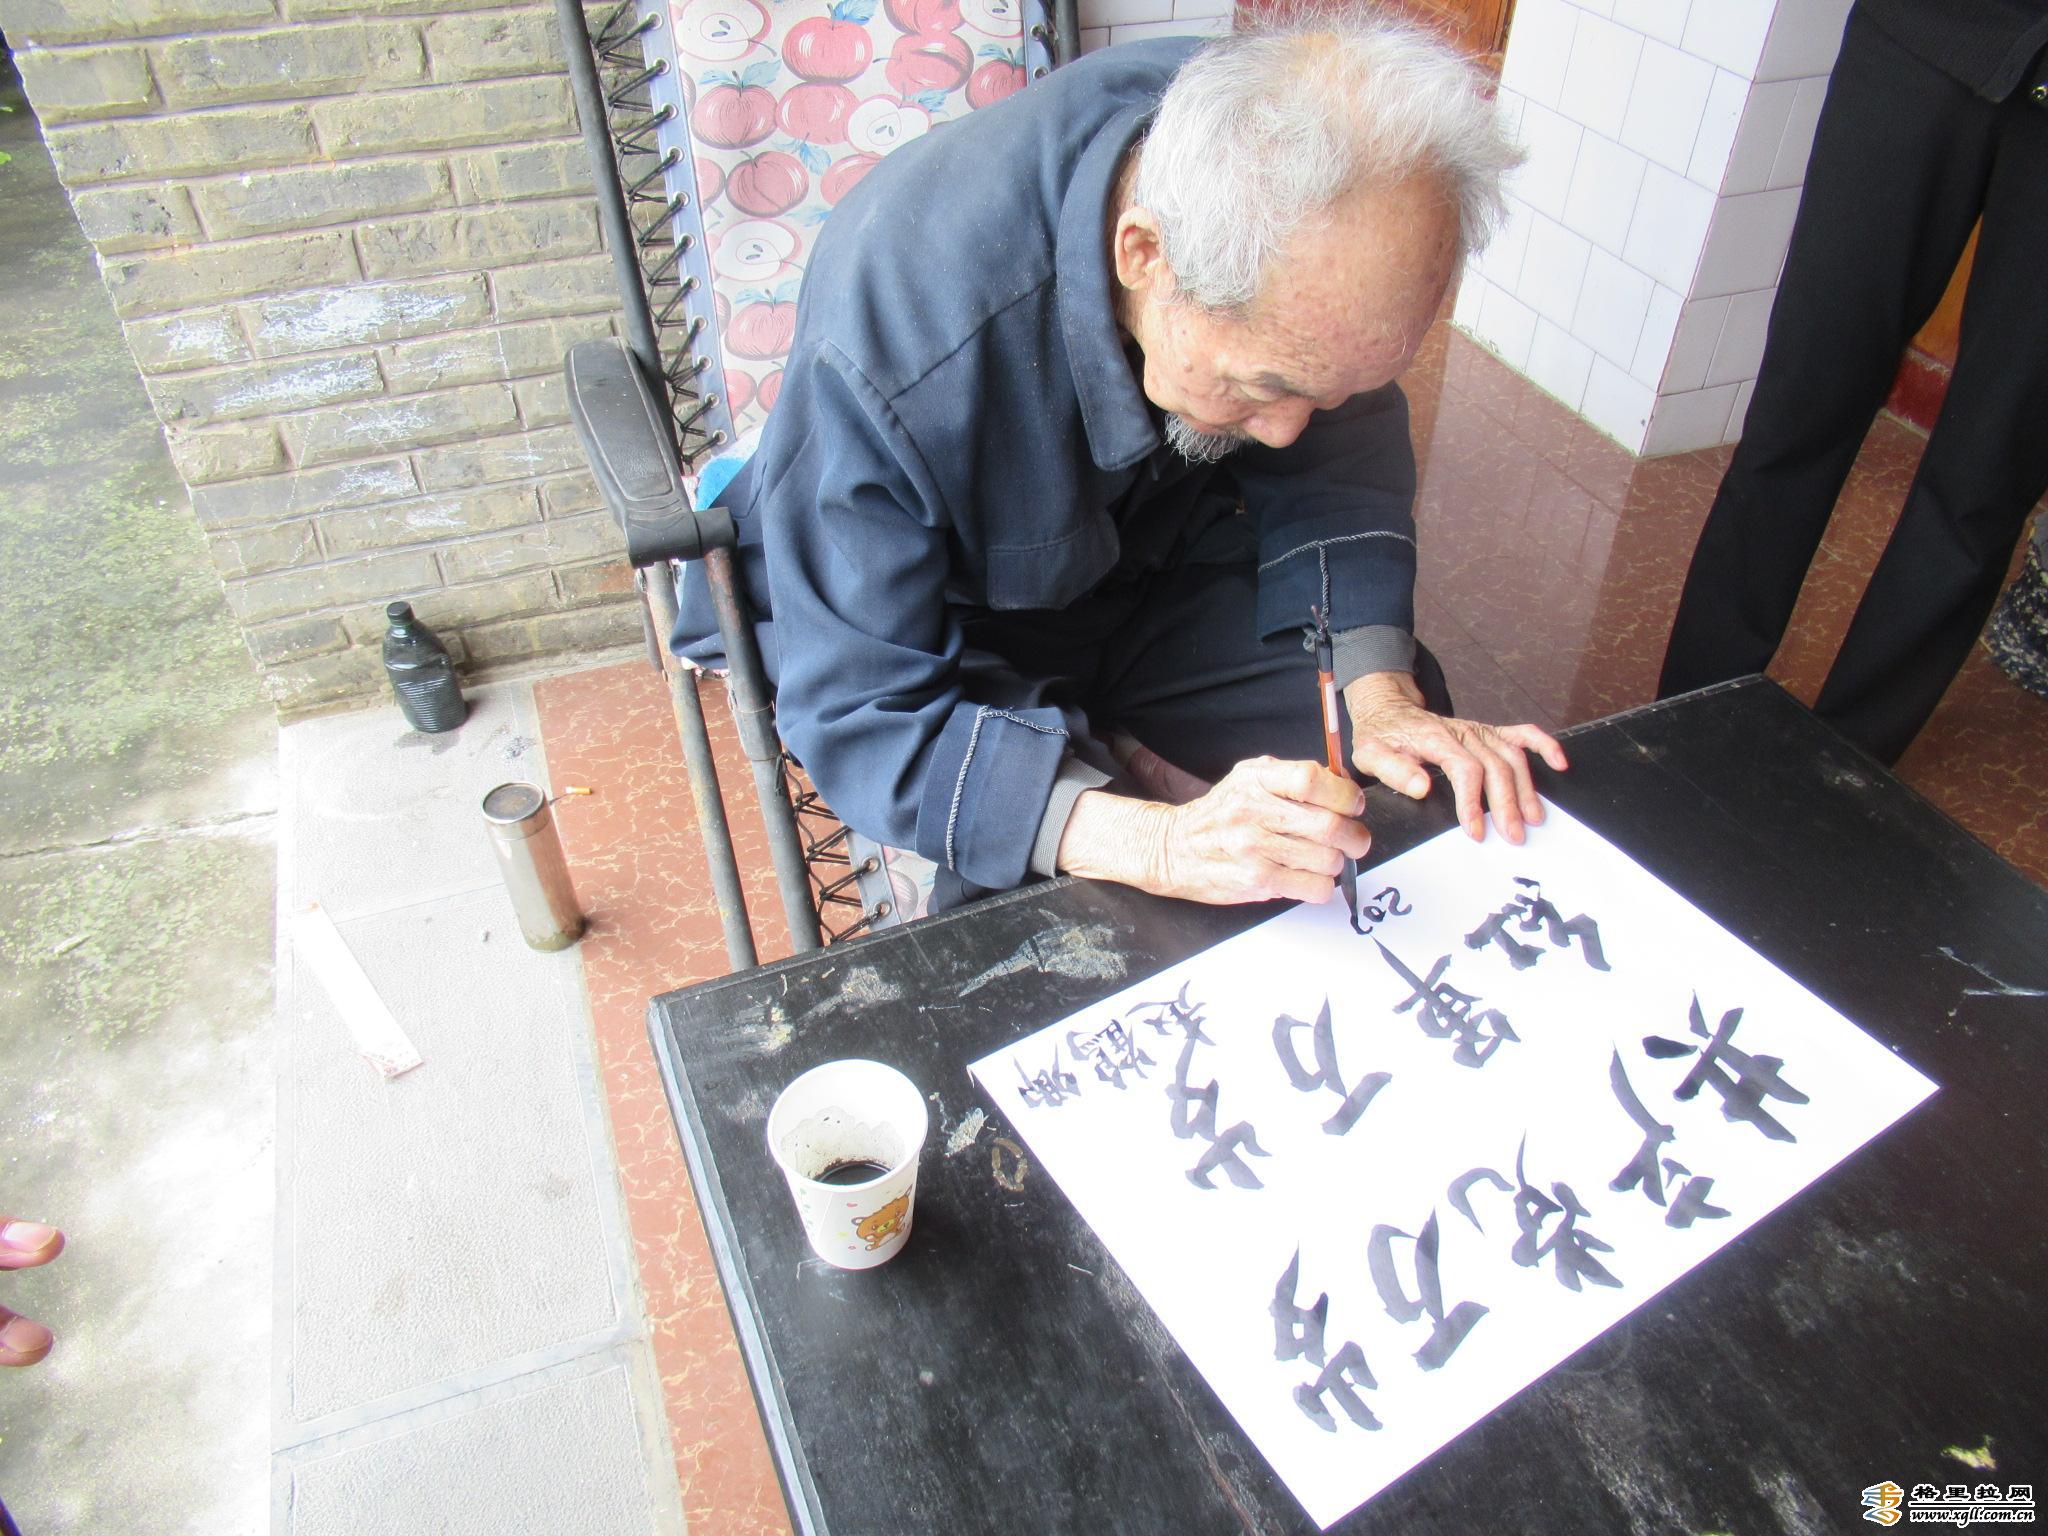 共产党万岁
红军万岁
格里拉网
www.xgll.com.cn